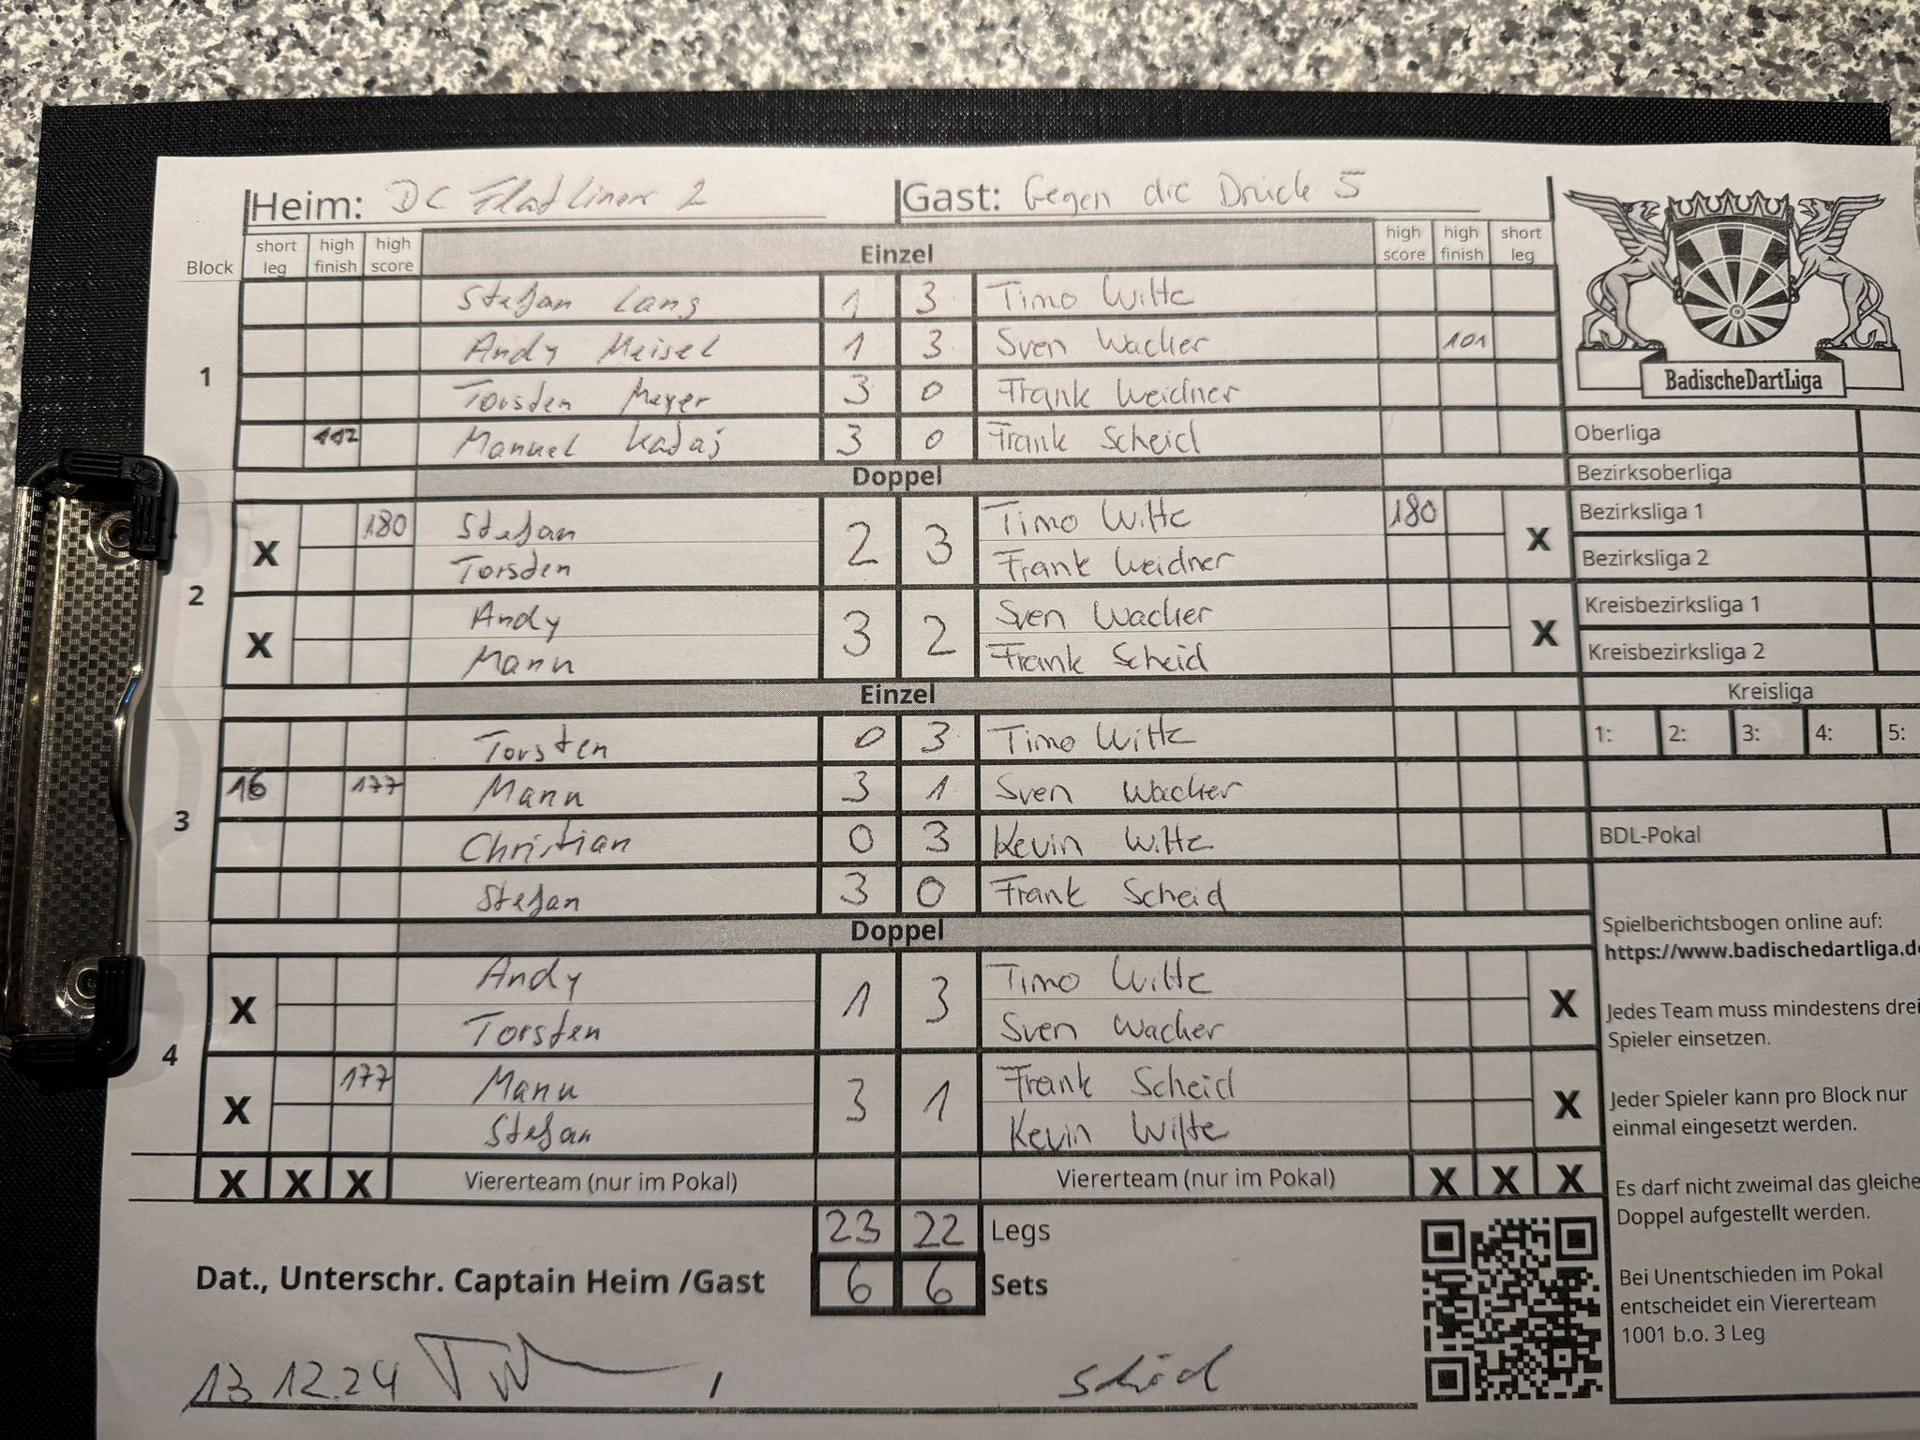 Heim: DC Flatliner 2 Gast: Gegen die Drück 5
Block short leg high finish high score Einzel high score high finish short leg
1
Stefan Lang 1 3 Timo Witte
Andy Meisel 1 3 Sven Wacker 101
Torsten Meyer 3 0 Frank Weidner
112 Manuel 3 0 Frank Scheid
Doppel
2
X 180 Stefan 2 3 Timo Witte 180 X
Torsten Frank Weidner
X Andy 3 2 Sven Wacker X
Manu Frank Scheid
Einzel
3
Torsten 0 3 Timo Witte
16 177 Manu 3 1 Sven Wacker
Christian 0 3 Kevin Witte
Stefan 3 0 Frank Scheid
Doppel
4
X Andy 1 3 Timo Witte X
Torsten Sven Wacker
X 177 Manu 3 1 Frank Scheid X
Stefan Kevin Witte
X X X Viererteam (nur im Pokal) Viererteam (nur im Pokal) X X X
23 22 Legs
Dat., Unterschr. Captain Heim /Gast 6 6 Sets
13.12.24 / Scheid
BadischeDartLiga
Oberliga
Bezirksoberliga
Bezirksliga 1
Bezirksliga 2
Kreisbezirksliga 1
Kreisbezirksliga 2
Kreisliga
1: 2: 3: 4: 5:
BDL-Pokal
Spielberichtsbogen online auf:
https://www.badischedartliga.d
Jedes Team muss mindestens drei
Spieler einsetzen.
Jeder Spieler kann pro Block nur
einmal eingesetzt werden.
Es darf nicht zweimal das gleiche
Doppel aufgestellt werden.
Bei Unentschieden im Pokal
entscheidet ein Viererteam
1001 b.o. 3 Leg